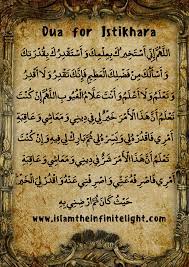 Dua for Istikhara
اللَّهُمَّ إِنِّي أَسْتَخِيرُكَ بِعِلْمِكَ وَأَسْتَقْدِرُكَ بِقُدْرَتِكَ
وَأَسْأَلُكَ مِنْ فَضْلِكَ الْعَظِيمِ فَإِنَّكَ تَقْدِرُ وَلَا أَقْدِرُ
وَتَعْلَمُ وَلَا أَعْلَمُ وَأَنْتَ عَلَّامُ الْغُيُوبِ اللَّهُمَّ إِنْ كُنْتَ
تَعْلَمُ أَنَّ هَذَا الْأَمْرَ خَيْرٌ لِي فِي دِينِي وَمَعَاشِي وَعَاقِبَةِ
أَمْرِي فَاقْدُرْهُ لِي وَيَسِّرْهُ لِي ثُمَّ بَارِكْ لِي فِيهِ وَإِنْ كُنْتَ
تَعْلَمُ أَنَّ هَذَا الْأَمْرَ شَرٌّ لِي فِي دِينِي وَمَعَاشِي وَعَاقِبَةِ
أَمْرِي فَاصْرِفْهُ عَنِّي وَاصْرِفْنِي عَنْهُ وَاقْدُرْ لِيَ الْخَيْرَ
حَيْثُ كَانَ ثُمَّ ارْضِنِي بِهِ
www.islamtheinfinitelight.com